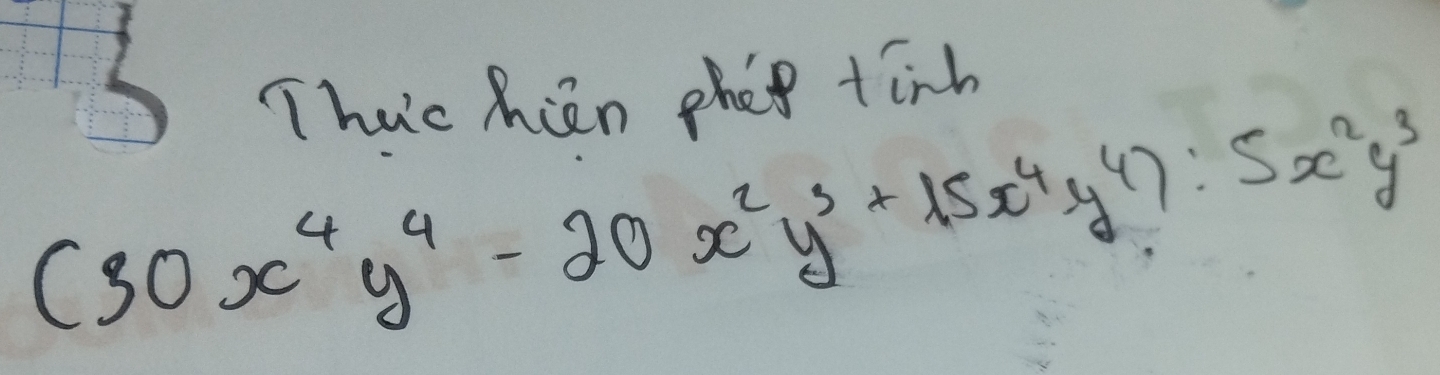 Thực hiện phép tính
(30x⁴y⁴ - 20x²y³ + 15x⁴y⁴) : 5x²y³